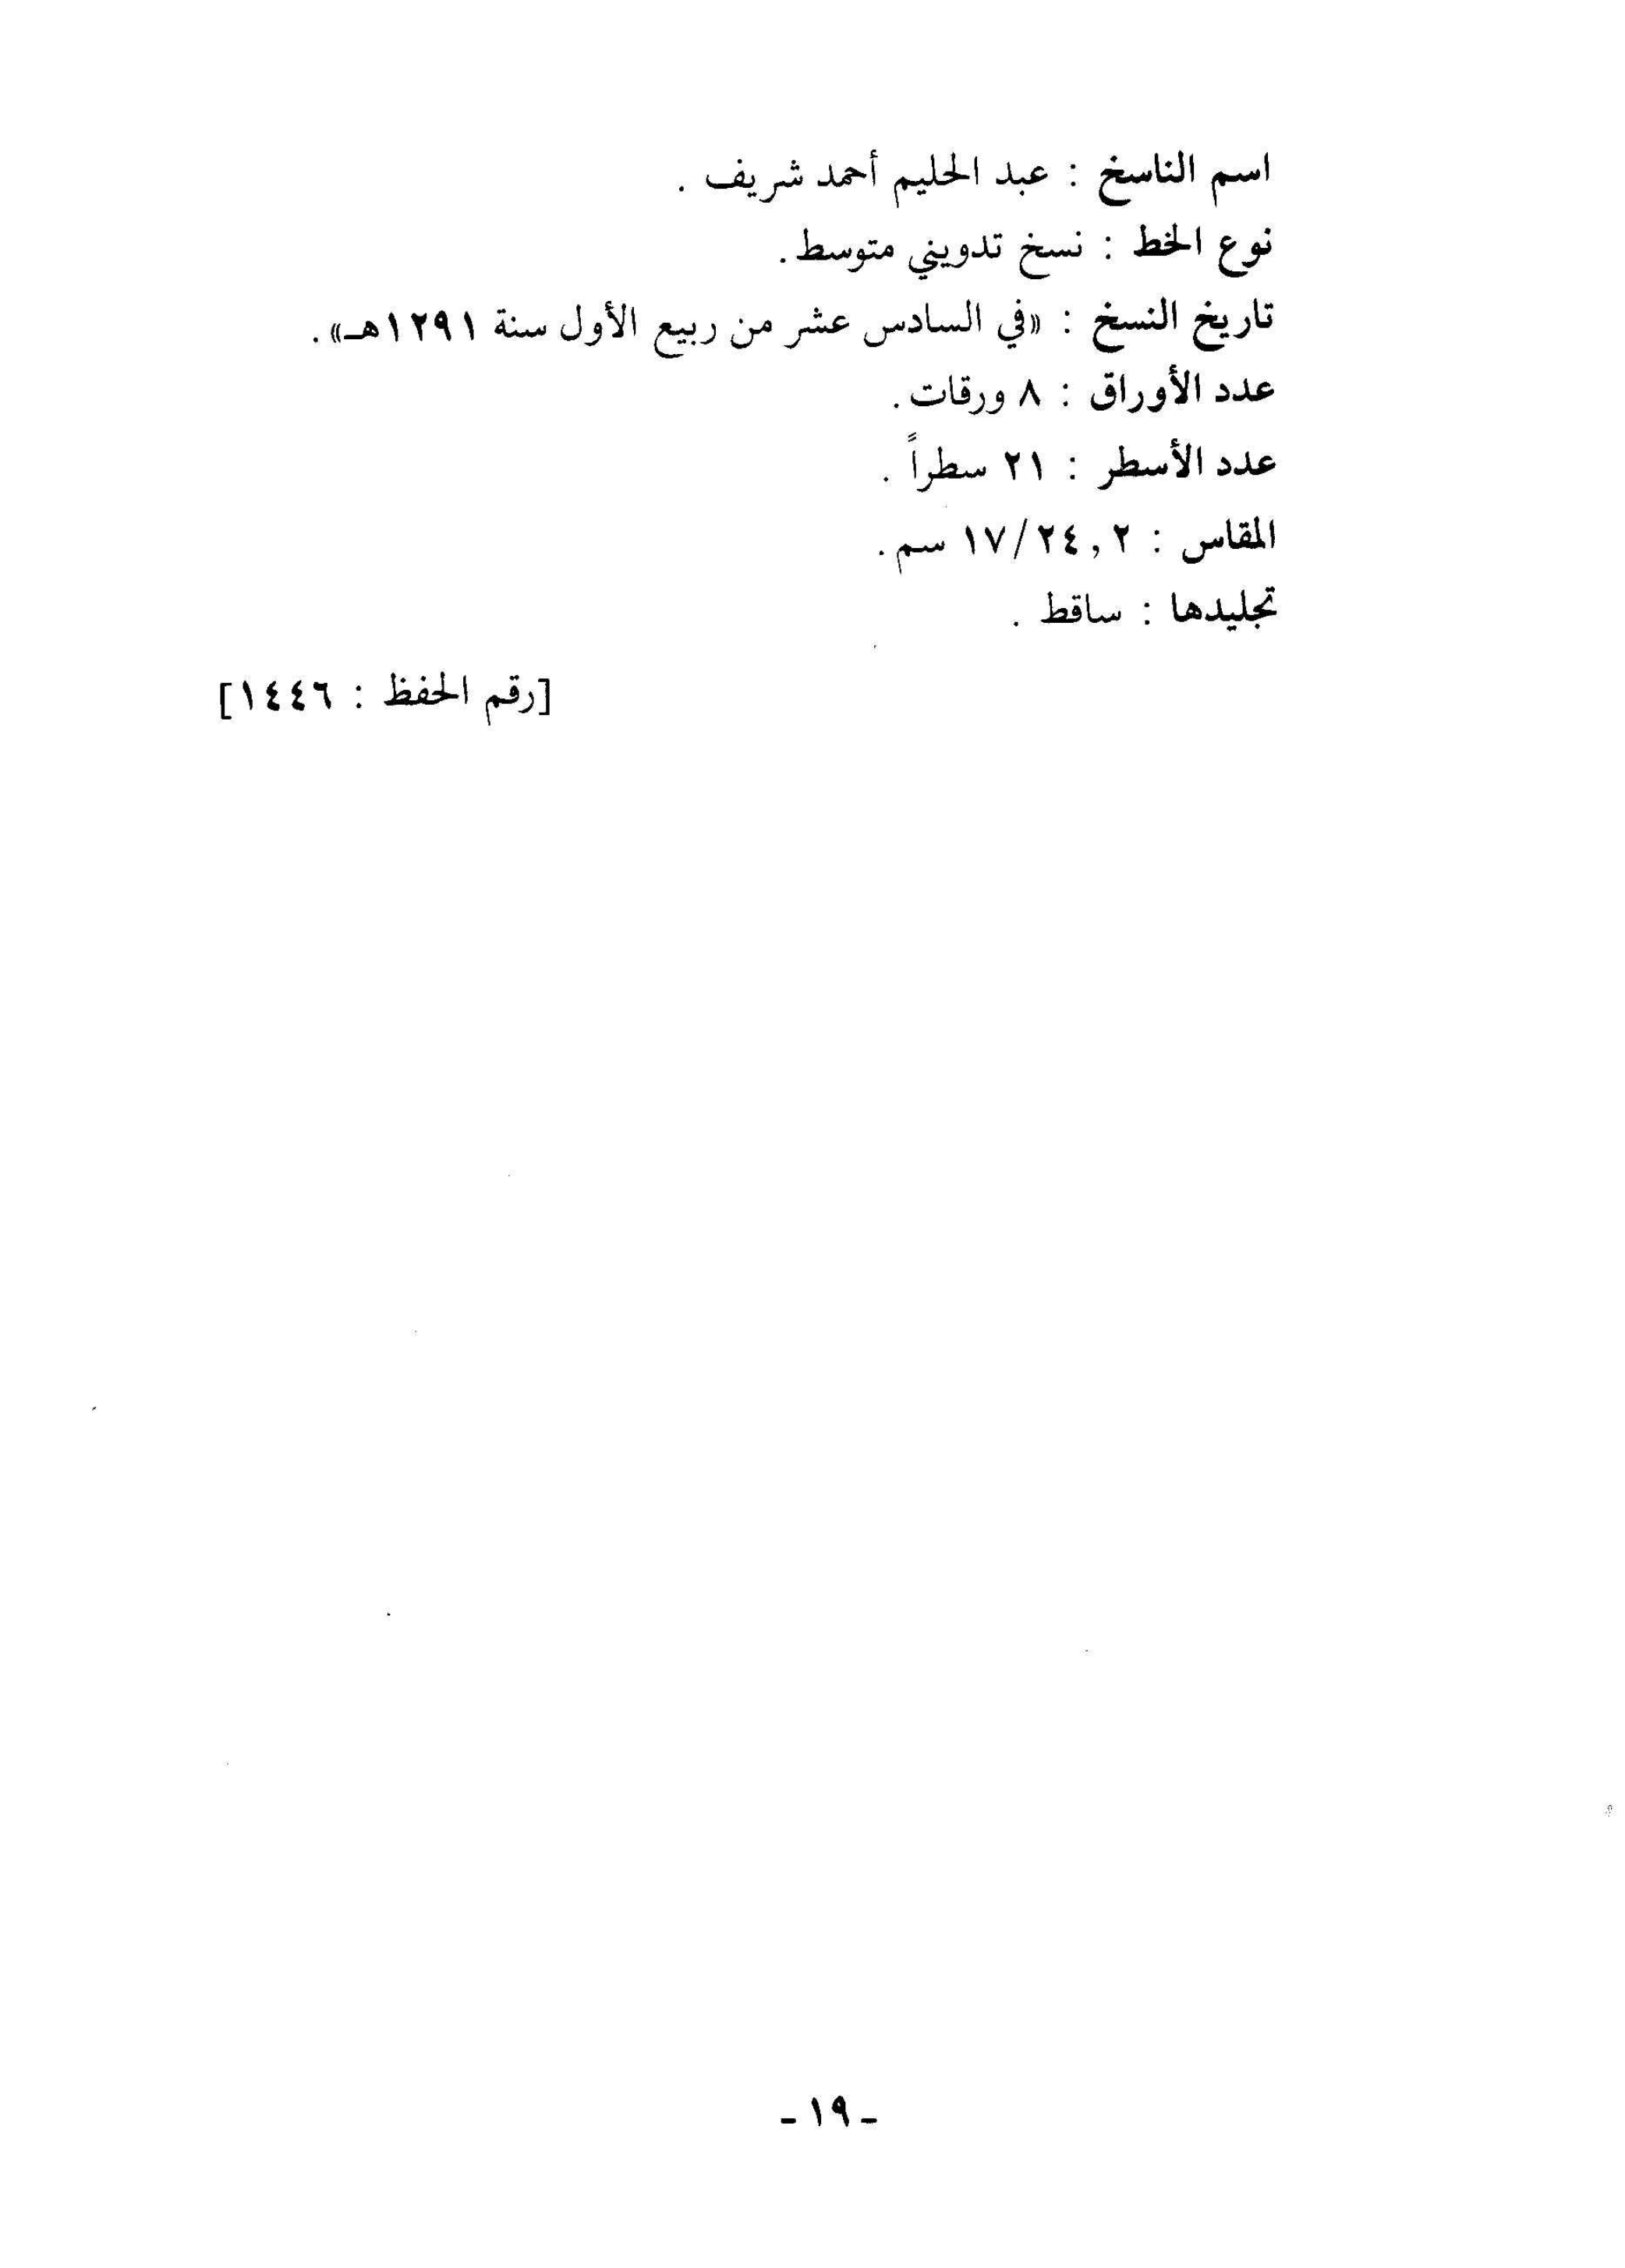 اسم الناسخ : عبد الحليم أحمد شريف .
نوع الخط : نسخ تدويني متوسط .
تاريخ النسخ : «في السادس عشر من ربيع الأول سنة ١٢٩١هـ» .
عدد الأوراق : ٨ ورقات .
عدد الأسطر : ٢١ سطراً .
المقاس : ١٧/٢٤,٢ سم .
تجليدها : ساقط .
[رقم الحفظ : ١٤٤٦]
- ١٩ -